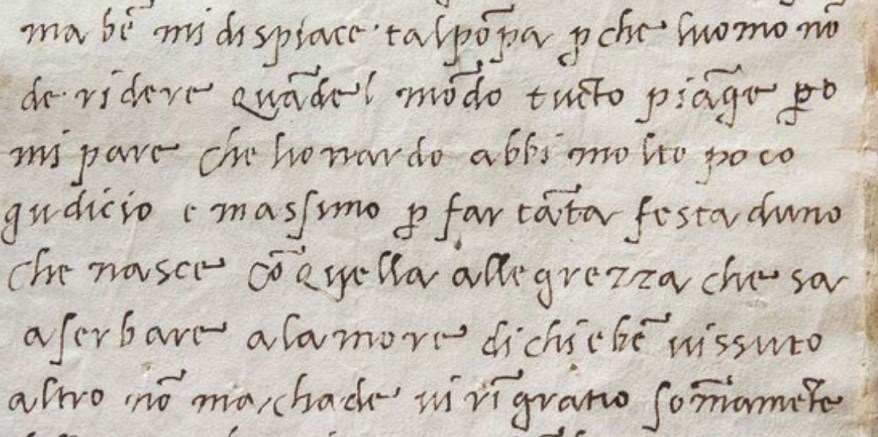 ma bē mi dispiace talpōpa p̱che luomo nō
de ridere quādel mōdo tucto piāge p̱o
mi pare che lionardo abbi molto poco
gudicio e massimo p̱ far tāta festa duno
che nasce cō quella allegrezza che sa
a serbare ala morte di chi e bē uissuto
altro nō machade ui rīgratio som̄amēte